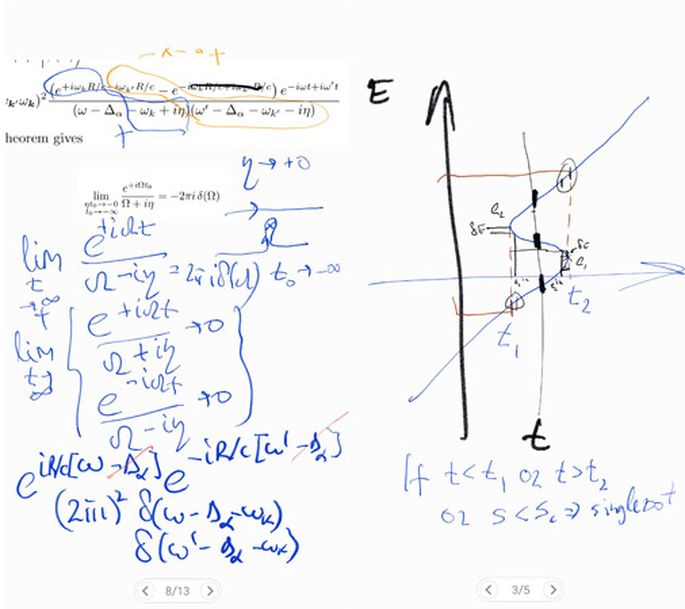 − x − = +
(e^{+iω_k R/c} − iω_{k'} R/c − e^{−iω_k R/c + iω_{k'} R/c}) e^{−iωt+iω't}
ω_{k'} ω_k)^2
(ω − Δ_α − ω_k + iη)(ω' − Δ_α − ω_{k'} − iη)
+
heorem gives
η → +0
lim e^{+iΩt_0} / Ω + iη = −2πi δ(Ω)
t_0→−∞
lim e^{+iΩt} / Ω − iη = 2πi δ(Ω) t_0 → −∞
t → ∞
lim { e^{+iΩt} / Ω + iη → 0
t → ∞
e^{−iΩt} / Ω − iη → 0 }
e^{iR/c[ω − Δ_α]} e^{−iR/c[ω' − Δ_α]}
(2πi)^2 δ(ω − Δ_α − ω_k)
δ(ω' − Δ_α − ω_k)
8/13
E
e_2
δE
δE
e_1
t_1
t_2
t
If t < t_1 or t > t_2
or s < s_c ⇒ single root
3/5